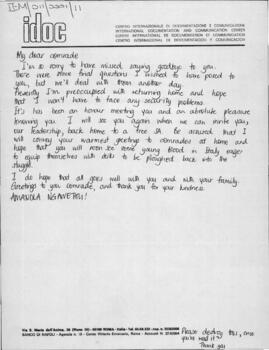 ISM/011/0001/11
idoc
CENTRO INTERNAZIONALE DI DOCUMENTAZIONE E COMUNICAZIONE
INTERNATIONAL DOCUMENTATION AND COMMUNICATION CENTER
CENTRE INTERNATIONAL DE DOCUMENTATION ET COMMUNICATION
CENTRO INTERNACIONAL DE DOCUMENTACION Y COMUNICACION
My dear comrade
I'm so sorry to have missed saying goodbye to you.
There were some final questions I wished to have posed to
you, but we'll deal with them another day.
Presently I'm preoccupied with returning home and hope
that I won't have to face any security problems.
It's has been an honour meeting you and an absolute pleasure
knowing you. I will see you again when we can invite you,
our leadership, back home to a free SA. Be assured that I
will convey your warmest greetings to comrades at home and
hope that you will soon see more young blood in Italy eager
to equip themselves with skills to be ploughed back into the
struggle.
I do hope that all goes well with you and with your family.
Greetings to you comrade, and thank you for your kindness.
AMANDLA NGAWETHU!
Please destroy this, once
you've read it?
Thank you
Via S. Maria dell'Anima, 30 (Piano III) - 00186 ROMA - Italia - Tel.
BANCO DI NAPOLI - Agenzia n. 18 - Corso Vittorio Emanuele, Roma - Account N.